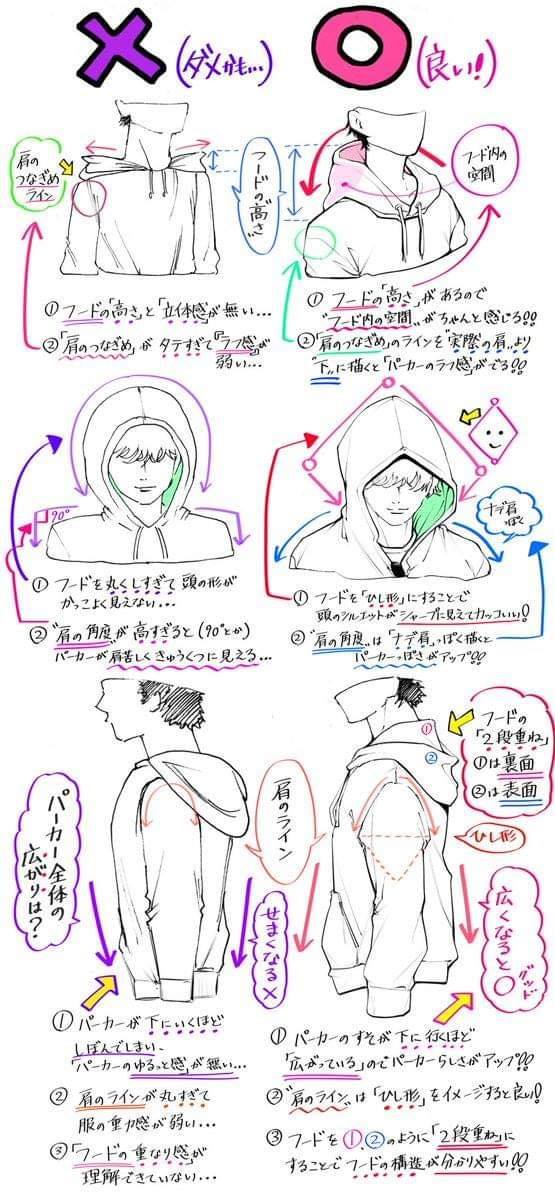 (ダメかも…)
(良い!)
肩の
つなぎめ
ライン
フードの高さ
フード内の
空間
①フードの「高さ」と「立体感」が無い…
②「肩のつなぎめ」がタテすぎて『ラフ感』が
弱い…
①フードの「高さ」があるので
“フード内の空間”がちゃんと感じる!!
②「肩のつなぎめ」のラインを“実際の肩”より
“下”に描くと「パーカーのラフ感」がでる!!
90°
ナデ肩
っぽく
①フードを丸くしすぎて頭の形が
かっこよく見えない…
②“肩の角度”が高すぎると(90°とか)
パーカーが肩苦しくきゅうくつに見える…
①フードを「ひし形」にすることで
頭のシルエットがシャープに見えてカッコいい!
②“肩の角度”は「ナデ肩」っぽく描くと
パーカーっぽさがアップ!!
パーカー全体の
広がりは?
肩のライン
せまくなる×
①
②
フードの
「2段重ね」
①は裏面
②は表面
ひし形
広くなると
○グッド
①パーカーが下にいくほど
しぼんでしまい、
「パーカーのゆるっと感」が無い…
②肩のラインが丸すぎて
服の重力感が弱い…
③「フードの重なり感」が
理解できていない…
①パーカーのすそが下に行くほど
「広がっている」のでパーカーらしさがアップ!!
②“肩のライン”は「ひし形」をイメージすると良い!
③フードを①、②のように「2段重ね」に
することでフードの構造が分かりやすい!!